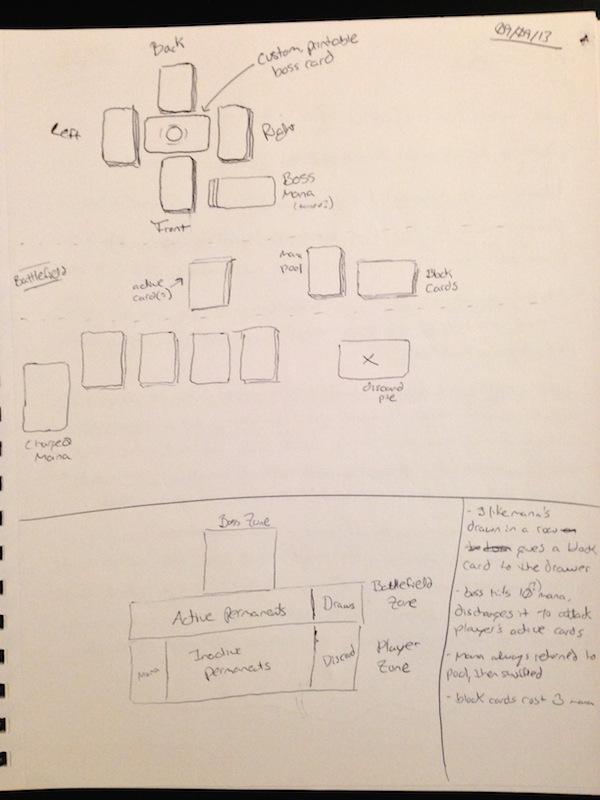 09/09/13
Back
Custom, printable
boss card
Left
Right
Boss
Mana
Front
Battlefield
active
card(s)
Mana
pool
Block
Cards
X
discard
pile
Charged
Mana
Boss Zone
Battlefield
Zone
Active permanents
Draws
Player
Zone
Mana
Inactive
permanents
Discard
- 3 like mana's
drawn in a row
gives a block
card to the drawer
- boss hits 10(?) mana,
discharges it to attack
player's active cards
- Mana always returned to
pool, then shuffled
- block cards cost 3 mana